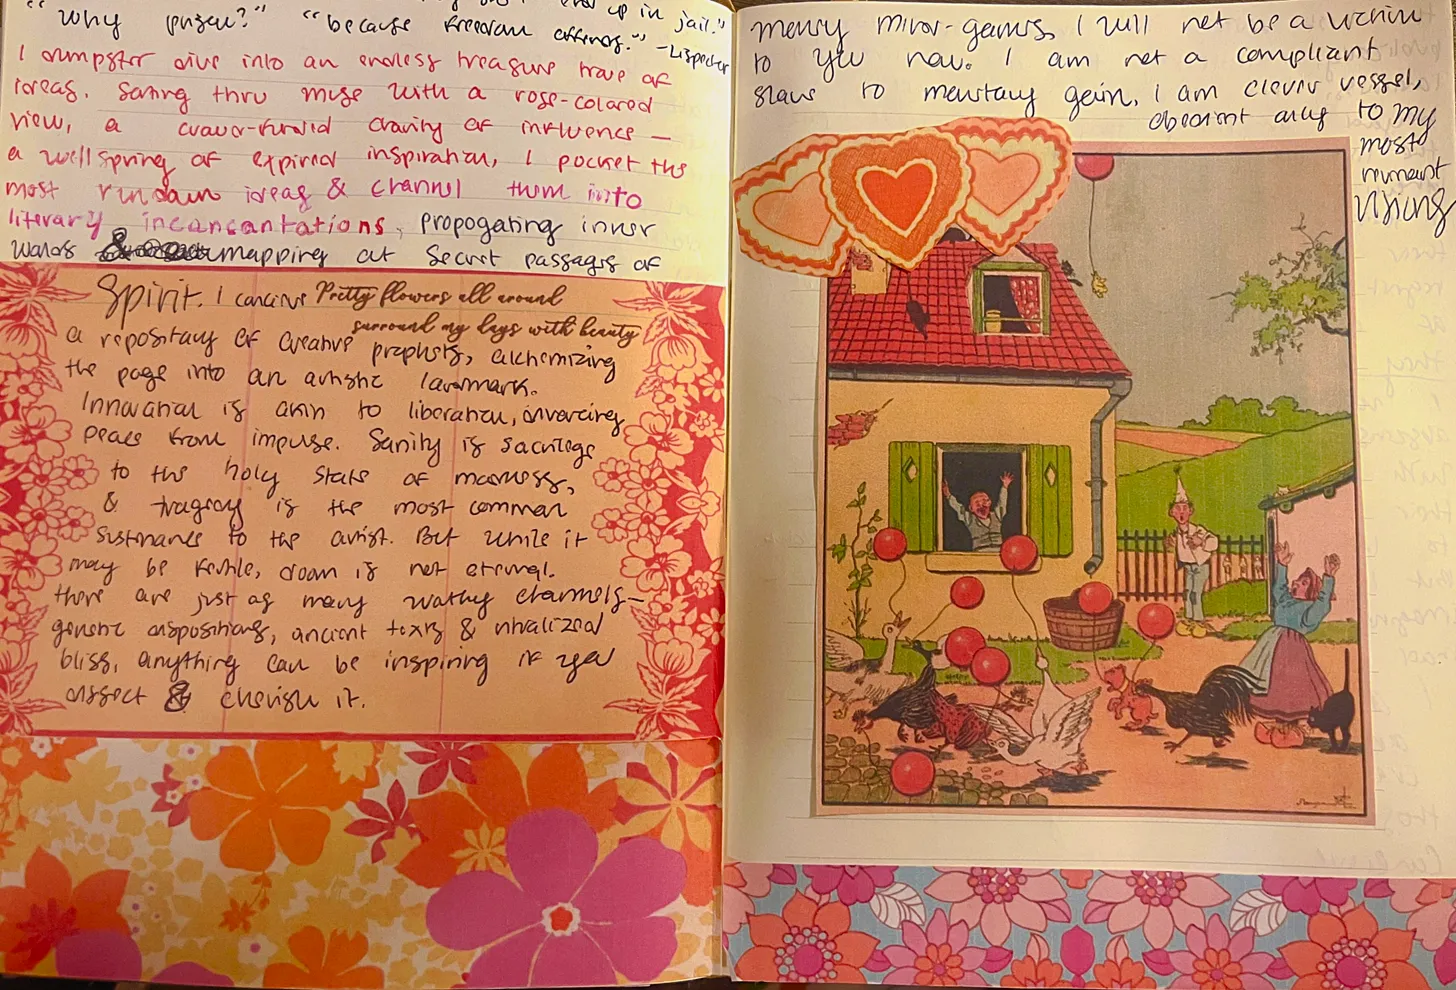 end up in jail."
"Why prison?" "because freedom offends." -Lispector
I dumpster dive into an endless treasure trove of
ideas. Seeing thru muse with a rose-colored
view, a crowd-funded craving of influence —
a wellspring of expired inspiration, I pocket the
most random ideas & channel them into
literary incansantations, propogating inner
worlds & mapping out secret passages of
Spirit. I conceive Pretty flowers all around
surround my days with beauty
a repository of creative prophets, alchemizing
the page into an artistic landmark.
Innovation is akin to liberation, divorcing
peace from impulse. Sanity is sacrilege
to the holy state of madness,
& tragedy is the most common
sustenance to the artist. But while it
may be fertile, doom is not eternal.
there are just as many worthy channels—
genetic dispositions, ancient texts & inhalized
bliss, anything can be inspiring if you
dissect & cherish it.
merry minor-games, I will not be a victim
to you now. I am not a compliant
slave to monetary gain, I am clever vessel,
obedient only to my
most
remnant
visions